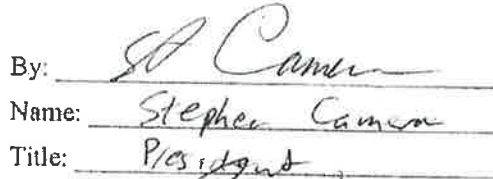 By: St Camern
Name: Stephen Camern
Title: President